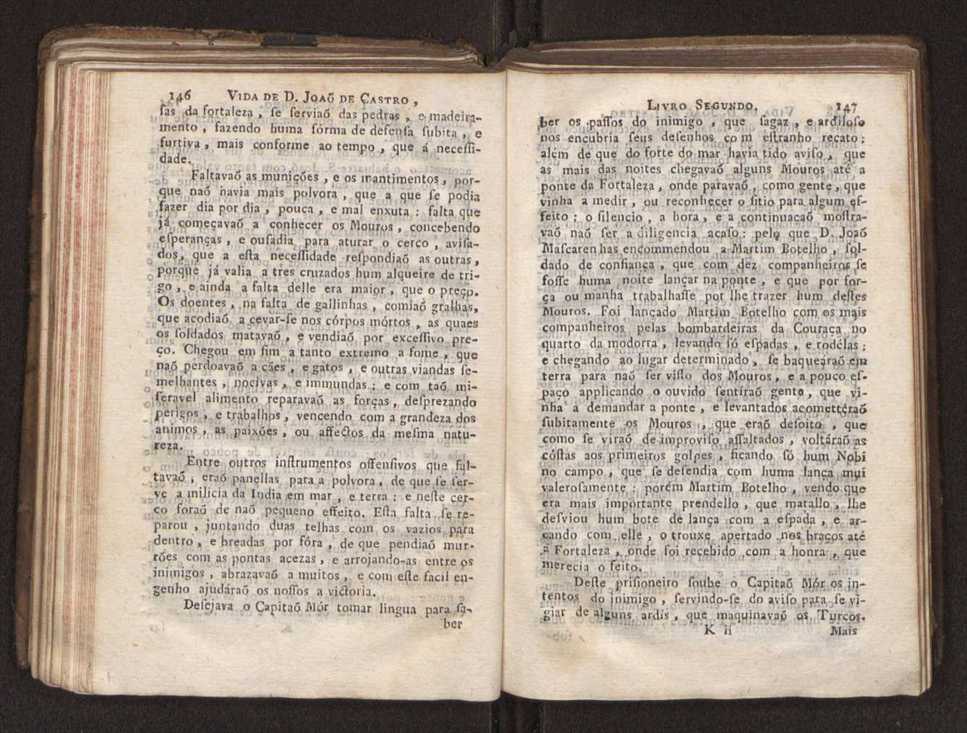 146 VIDA DE D. JOAÕ DE CASTRO ,
ſas da fortaleza , ſe ſerviaõ das pedras , e madeira-
mento , fazendo huma fórma de defenſa ſubita , e
furtiva , mais conforme ao tempo , que á neceſſi-
dade.
Faltavaõ as munições , e os mantimentos , por-
que naõ havia mais polvora , que a que ſe podia
fazer dia por dia , pouca , e mal enxuta : falta que
já começavaõ a conhecer os Mouros , concebendo
eſperanças , e ouſadia para aturar o cerco , aviſa-
dos , que a eſta neceſſidade reſpondiaõ as outras ,
porque já valia a tres cruzados hum alqueire de tri-
go , e ainda a falta delle era maior , que o preço.
Os doentes , na falta de gallinhas , comiaõ gralhas,
que acodiaõ a cevar-ſe nos córpos mórtos , as quaes
os ſoldados matavaõ , e vendiaõ por exceſſivo pre-
ço. Chegou em fim a tanto extremo a fome , que
naõ perdoavaõ a cães , e gatos , e outras viandas ſe-
melhantes , nocivas , e immundas ; e com taõ mi-
ſeravel alimento reparavaõ as forças , deſprezando
perigos , e trabalhos , vencendo com a grandeza dos
animos , as paixões , ou affectos da meſma natu-
reza.
Entre outros inſtrumentos offenſivos que fal-
tavaõ , eraõ panellas para a polvora , de que ſe ſer-
ve a milicia da India em mar , e terra : e neſte cer-
co foraõ de naõ pequeno effeito. Eſta falta ſe re-
parou , juntando duas telhas com os vazios para
dentro , e breadas por fóra , de que pendiaõ mur-
rões com as pontas acezas , e arrojando-as entre os
inimigos , abrazavaõ a muitos , e com eſte facil en-
genho ajudáraõ os noſſos a victoria.
Deſejava o Capitaõ Mór tomar lingua para ſa-
ber
LIVRO SEGUNDO. 147
ber os paſſos do inimigo , que ſagaz , e ardiloſo
nos encubria ſeus deſenhos com eſtranho recato ;
além de que do forte do mar havia tido aviſo , que
as mais das noites chegavaõ alguns Mouros até a
ponte da Fortaleza , onde paravaõ , como gente , que
vinha a medir , ou reconhecer o ſitio para algum ef-
feito ; o ſilencio , a hora , e a continuaçaõ moſtra-
vaõ naõ ſer a diligencia acaſo : pelo que D. Joaõ
Maſcarenhas encommendou a Martim Botelho , ſol-
dado de confiança , que com dez companheiros ſe
foſſe huma noite lançar na ponte , e que por for-
ça ou manha trabalhaſſe por lhe trazer hum deſtes
Mouros. Foi lançado Martim Botelho com os mais
companheiros pelas bombardeiras da Couraça no
quarto da modorra , levando ſó eſpadas , e rodélas ;
e chegando ao lugar determinado , ſe baqueáraõ em
terra para naõ ſer viſto dos Mouros , e a pouco eſ-
paço applicando o ouvido ſentíraõ gente , que vi-
nha a demandar a ponte , e levantados acomettêraõ
ſubitamente os Mouros , que eraõ deſoito , que
como ſe viraõ de improviſo aſſaltados , voltáraõ as
cóſtas aos primeiros golpes , ficando ſó hum Nobi
no campo , que ſe defendia com huma lança mui
valeroſamente ; porém Martim Botelho , vendo que
era mais importante prendello , que matallo , lhe
deſviou hum bote de lança com a eſpada , e ar-
cando com elle , o trouxe apertado nos braços até
á Fortaleza , onde foi recebido com a honra , que
merecia o feito.
Deſte priſioneiro ſoube o Capitaõ Mór os in-
tentos do inimigo , ſervindo-ſe do aviſo para ſe vi-
giar de alguns ardis , que maquinavaõ os Turcos.
K ii Mais